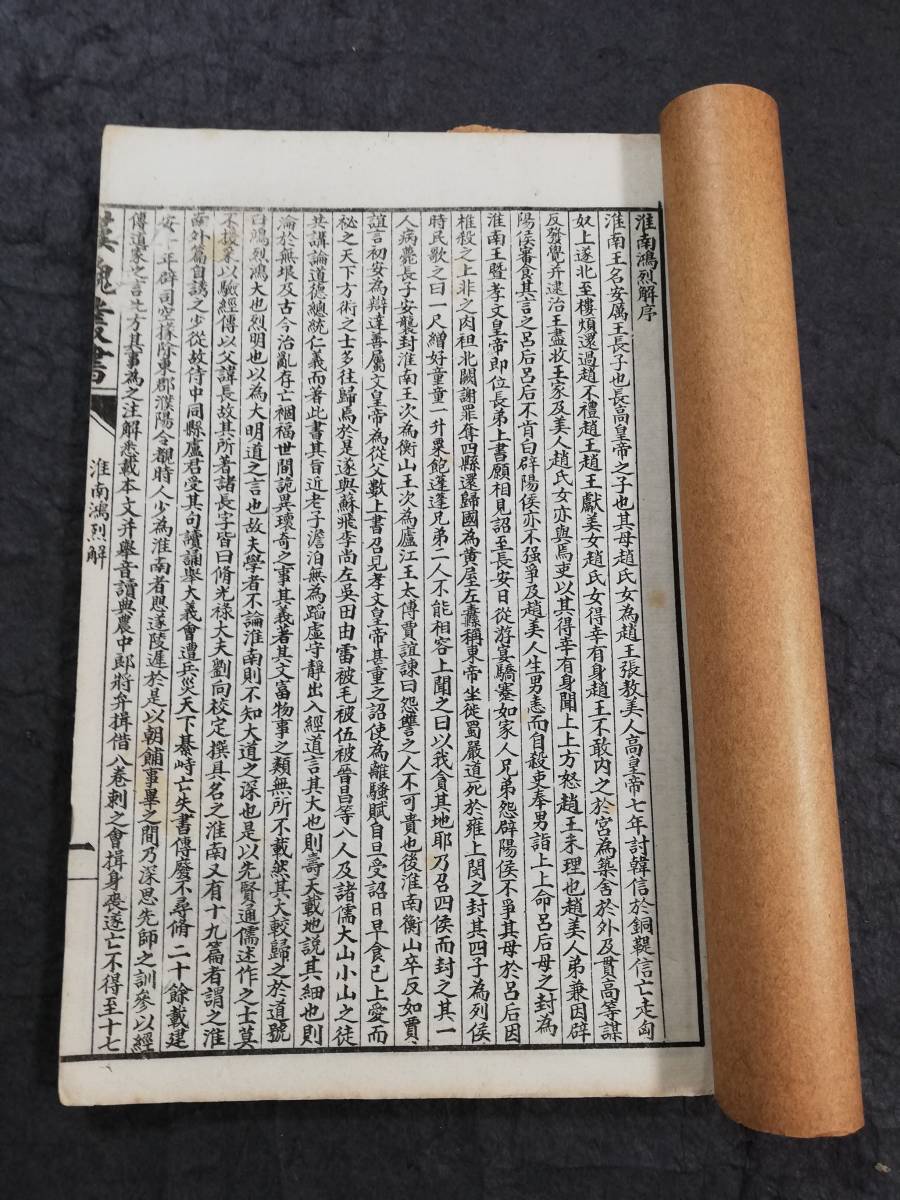 淮南鴻烈解序
淮南王名安厲王長子也長高皇帝之子也其母趙氏女為趙王張敖美人高皇帝七年討韓信於銅鞮信亡走匈
奴上遂北至樓煩還過趙不禮趙王趙王獻美女趙氏女得幸有身趙王不敢內之於宮為築舍於外及貫高等謀
反發覺并逮治王盡收王家及美人趙氏女亦與焉吏以其得幸有身聞上上方怒趙王未理也趙美人弟兼因辟
陽侯審食其言之呂后呂后不肯白辟陽侯亦不强爭及趙美人生男恚而自殺吏奉男詣上上命呂后母之封為
淮南王暨孝文皇帝即位長弟上書願相見詔至長安日從游宴驕蹇如家人兄弟怨辟陽侯不爭其母於呂后因
椎殺之上非之肉袒北闕謝罪奪四縣還歸國為黃屋左纛稱東帝坐徙蜀嚴道死於雍上閔之封其四子為列侯
時民歌之曰一尺繒好童童一升粟飽蓬蓬兄弟二人不能相容上聞之曰以我貪其地耶乃召四侯而封之其一
人病薨長子安襲封淮南王次為衡山王次為廬江王太傅賈誼諫曰怨讐之人不可貴也後淮南衡山卒反如賈
誼言初安為辯達善屬文皇帝為從父數上書召見孝文皇帝甚重之詔使為離騷賦自旦受詔日早食已上愛而
祕之天下方術之士多往歸焉於是遂與蘇飛李尚左吳田由雷被毛被伍被晉昌等八人及諸儒大山小山之徒
共講論道德總統仁義而著此書其旨近老子澹泊無為蹈虛守靜出入經道言其大也則燾天載地說其細也則
淪於無垠及古今治亂存亡禍福世間詭異瓌奇之事其義著其文富物事之類無所不載然其大較歸之於道號
曰鴻烈鴻大也烈明也以為大明道之言也故夫學者不論淮南則不知大道之深也是以先賢通儒述作之士莫
不援采以驗經傳以父諱長故其所著諸長字皆曰脩光祿大夫劉向校定撰具名之淮南又有十九篇者謂之淮
南外篇自誘之少從故侍中同縣盧君受其句讀誦舉大義會遭兵災天下棊峙亡失書傳廢不尋脩二十餘載建
安十年辟司空掾除東郡濮陽令覩時人少為淮南者思遂陵遲於是以朝餔事畢之間乃深思先師之訓參以經
傳道家之言比方其事為之注解悉載本文并舉音讀典農中郎將弁揖借八卷刺之會揖身喪遂亡不得至十七
漢魏叢書
淮南鴻烈解
一